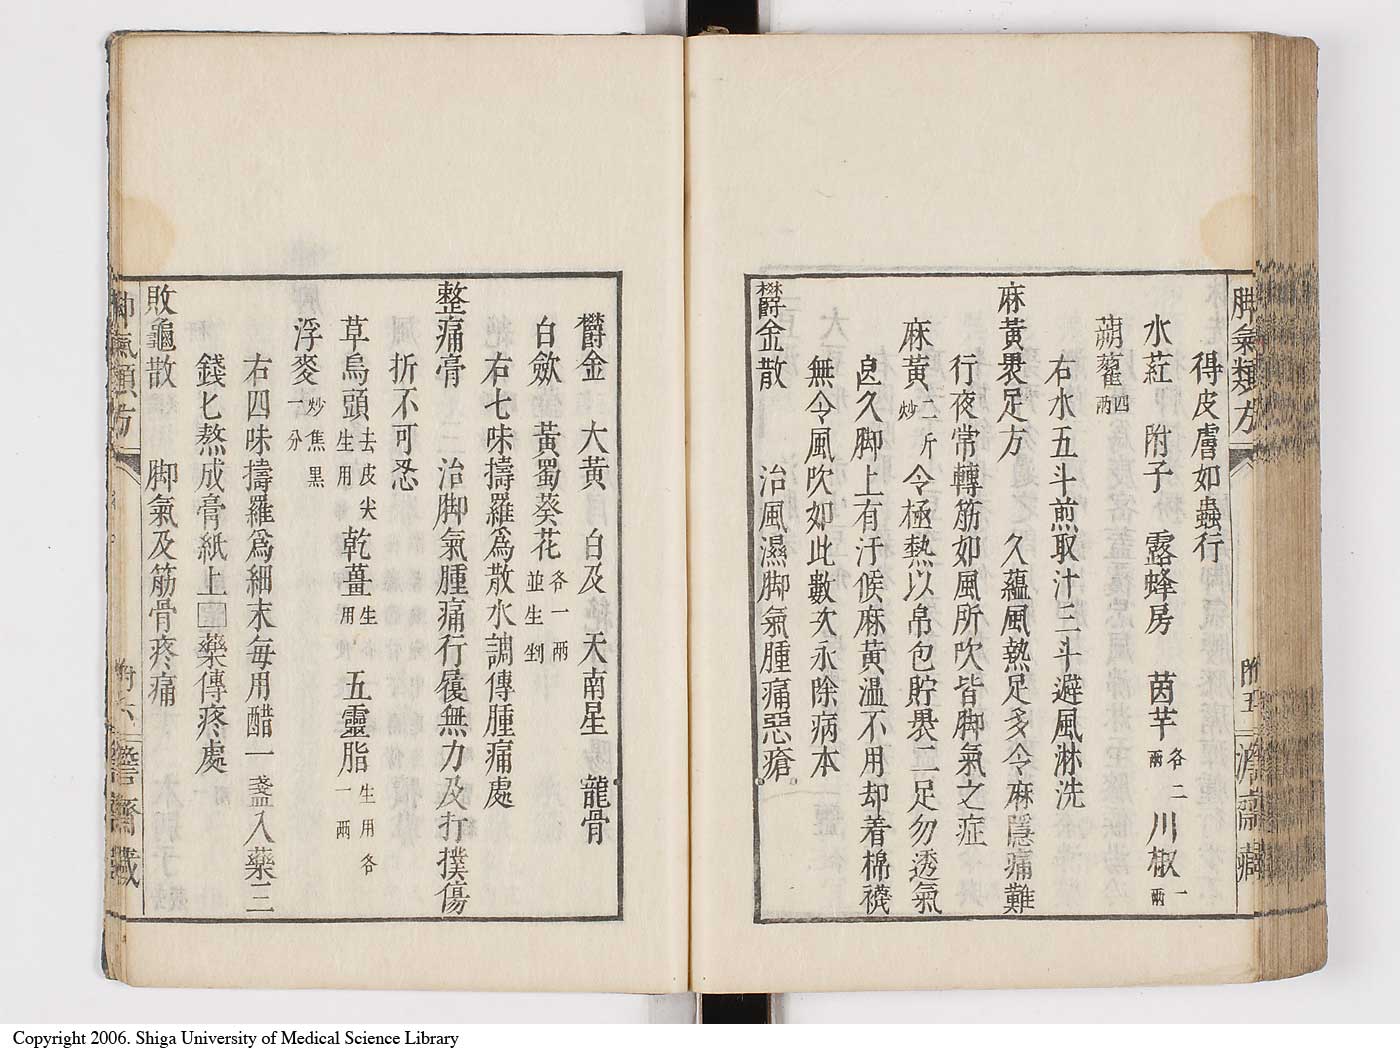 得皮膚如蟲行
水葒 附子 露蜂房 茵芋各二兩 川椒一兩
蒴藋四兩
右水五斗煎取汁三斗避風淋洗
麻黃褁足方 久蘊風熱足多令麻隱痛難
行夜常轉筋如風所吹皆脚氣之症
麻黃二斤炒 令極熱以帛包貯褁二足勿透氣
良久脚上有汗候麻黃温不用却着棉襪
無令風吹如此數次永除病本
欎金散 治風濕脚氣腫痛惡瘡
脚氣類方 附五 濟齋藏
欝金 大黃 白及 天南星 龍骨
白歛 黃蜀葵花各一兩並生剉
右七味擣羅爲散水調傅腫痛處
整痛膏 治脚氣腫痛行履無力及打撲傷
折不可忍
草烏頭去皮尖生用 乾薑生用 五靈脂生用各一兩
浮麥炒焦黑一分
右四味擣羅爲細末每用醋一盞入藥三
錢匕熬成膏紙上藥傅疼處
敗龜散 脚氣及筋骨疼痛
脚氣類方 附六 齋藏
Copyright 2006. Shiga University of Medical Science Library